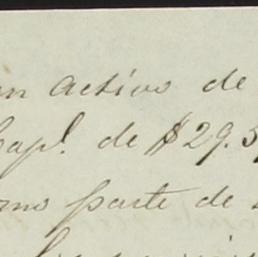 un activo de
Capl. de $29.5
omo parte de